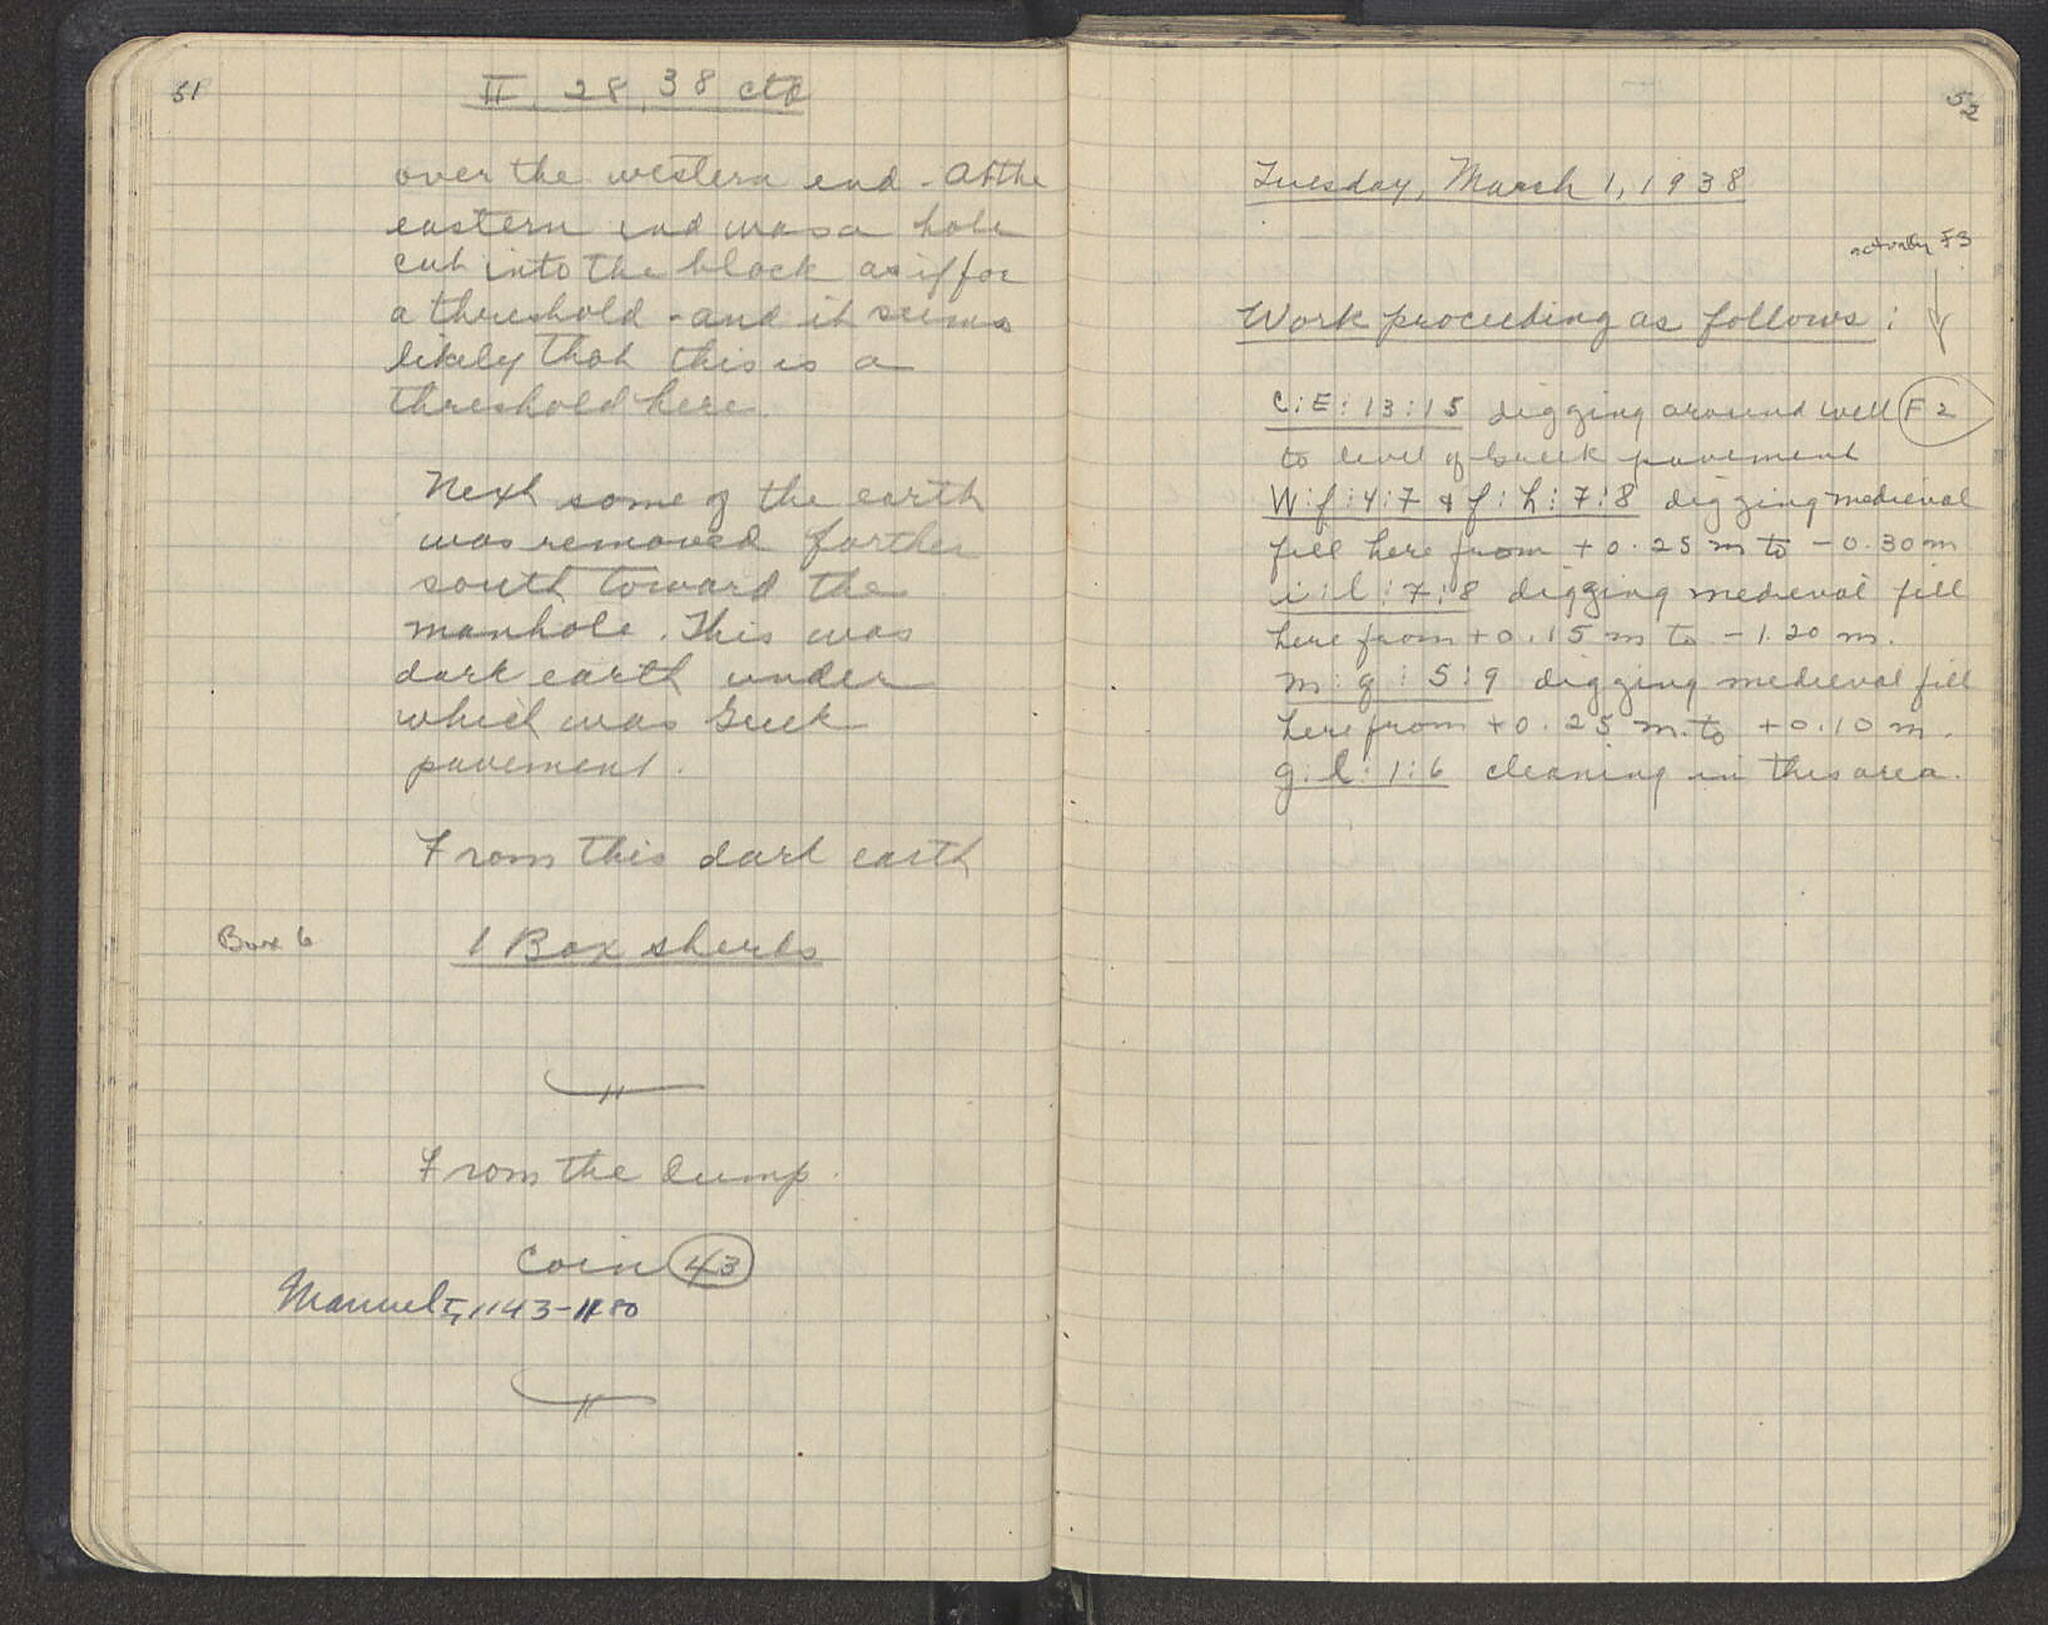 51
II, 28, 38 ctd
over the western end - At the
eastern end was a hole
cut into the block as if for
a threshold - and it seems
likely that this is a
threshold here.
Next some of the earth
was removed farther
south toward the
manhole. This was
dark earth under
which was Greek
pavement.
From this dark earth
Box 6
1 Box sherds
From the dump.
Coin 43
Manuel I, 1143-1180
52
Tuesday, March 1, 1938
actually F3
Work proceeding as follows:
C:E:13:15 digging around well F2
to level of Greek pavement
W:f:4:7 & f:h:7:8 digging medieval
fill here from +0.25 m to -0.30 m
i:l:7:8 digging medieval fill
here from +0.15 m to -1.20 m.
m:q:5:9 digging medieval fill
here from +0.25 m. to +0.10 m.
g:l:1:6 cleaning in this area.